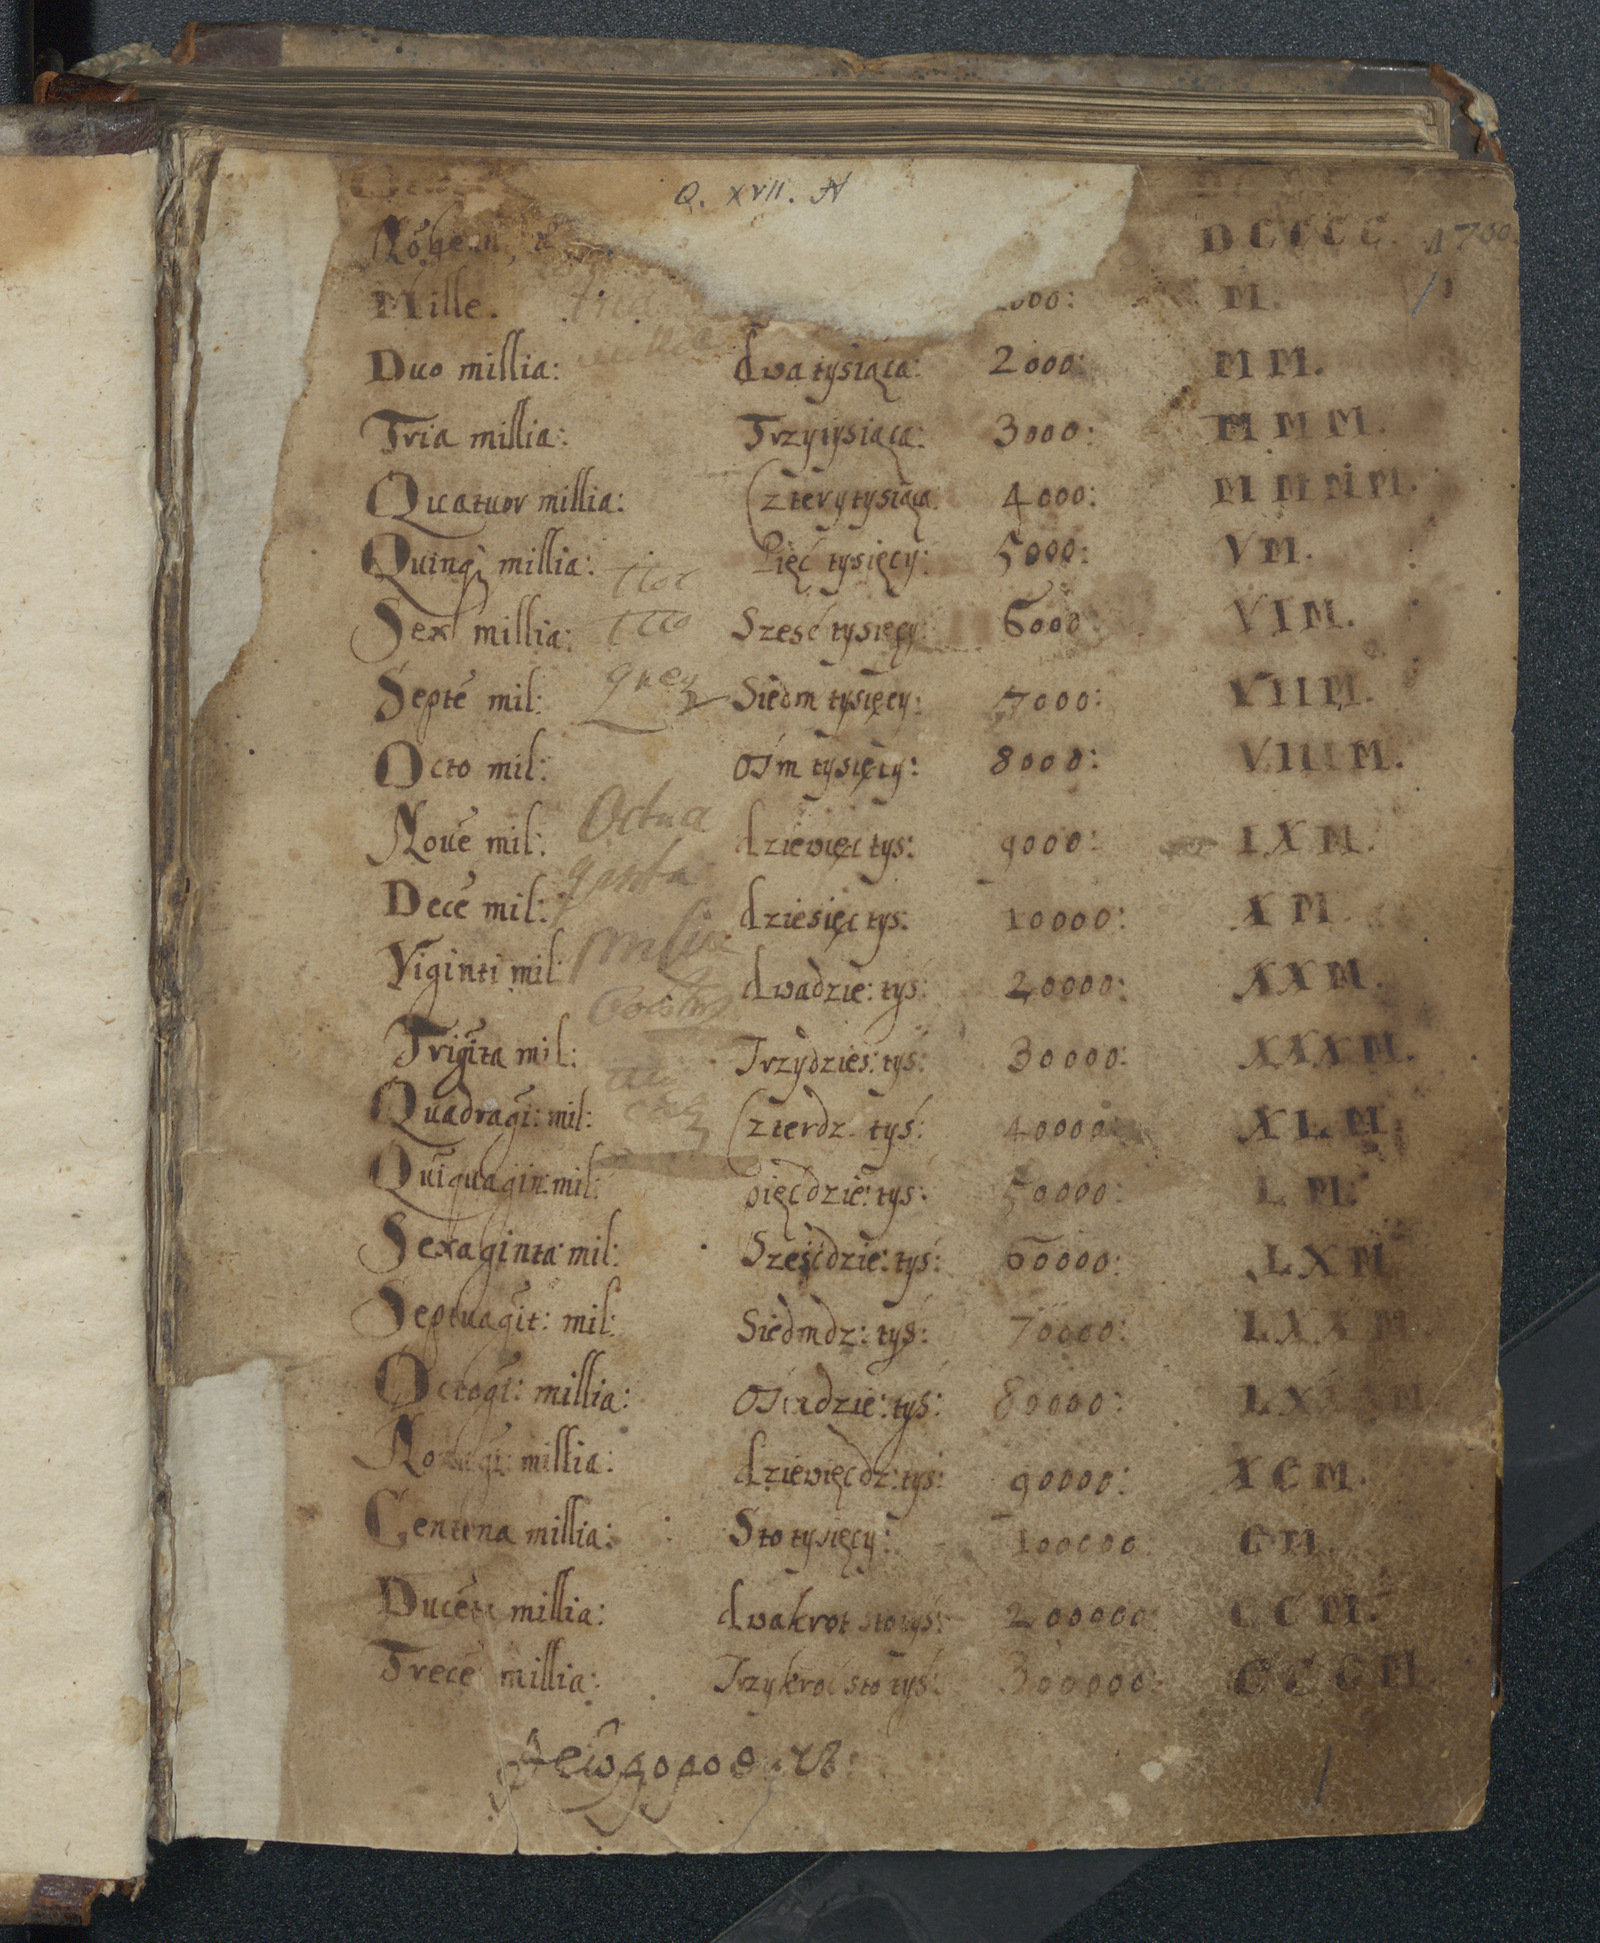 Q. XVII. N
DCCCC. 1700.
Mille. M.
Duo millia: dwa tysiąca: 2000: MM.
Tria millia: Trzy tysiąca: 3000: MMM.
Quatuor millia: Cztery tysiąca 4000: MMMM.
Quinq; millia: Pięć tysięcy: 5000: VM.
Sex millia: Sześć tysięcy: 6000: VIM.
Septē mil: Siedm tysięcy: 7000: VIIM.
Octo mil: Osm tysięcy: 8000: VIIIM.
Octua
Nouē mil: dziewięc tys: 9000: IXM.
ginta
Decē mil: dziesięc tys: 10000: XM.
Viginti mil: dwadzie: tyś: 20000: XXM.
Trigīta mil: Trzydzies: tyś: 30000: XXXM.
Quadragī: mil: Czterdz. tyś: 40000: XLM.
Quīquagin: mil: pięćdzie: tyś: 50000: LM.
Sexaginta mil: Sześćdzie: tyś: 60000: LXM
Septuagīt: mil: Siedmdz: tyś: 70000: LXXM.
Octogī: millia: Osmdzie: tyś: 80000:
millia: dziewięćdz: tyś: 90000: XCM.
Centena millia: Sto tysięcy: 100000: CM.
Ducēta millia: dwakroć sto tyś: 200000: CCM.
Trecē millia: Trzykroć sto tyś: 300000: CCCM.